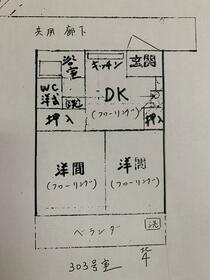 共用廊下
浴室
キッチン
玄関
WC
洋式
洗
DK
(フローリング)
押入
押入
洋間
(フローリング)
洋間
(フローリング)
ベランダ
洗
北
303号室